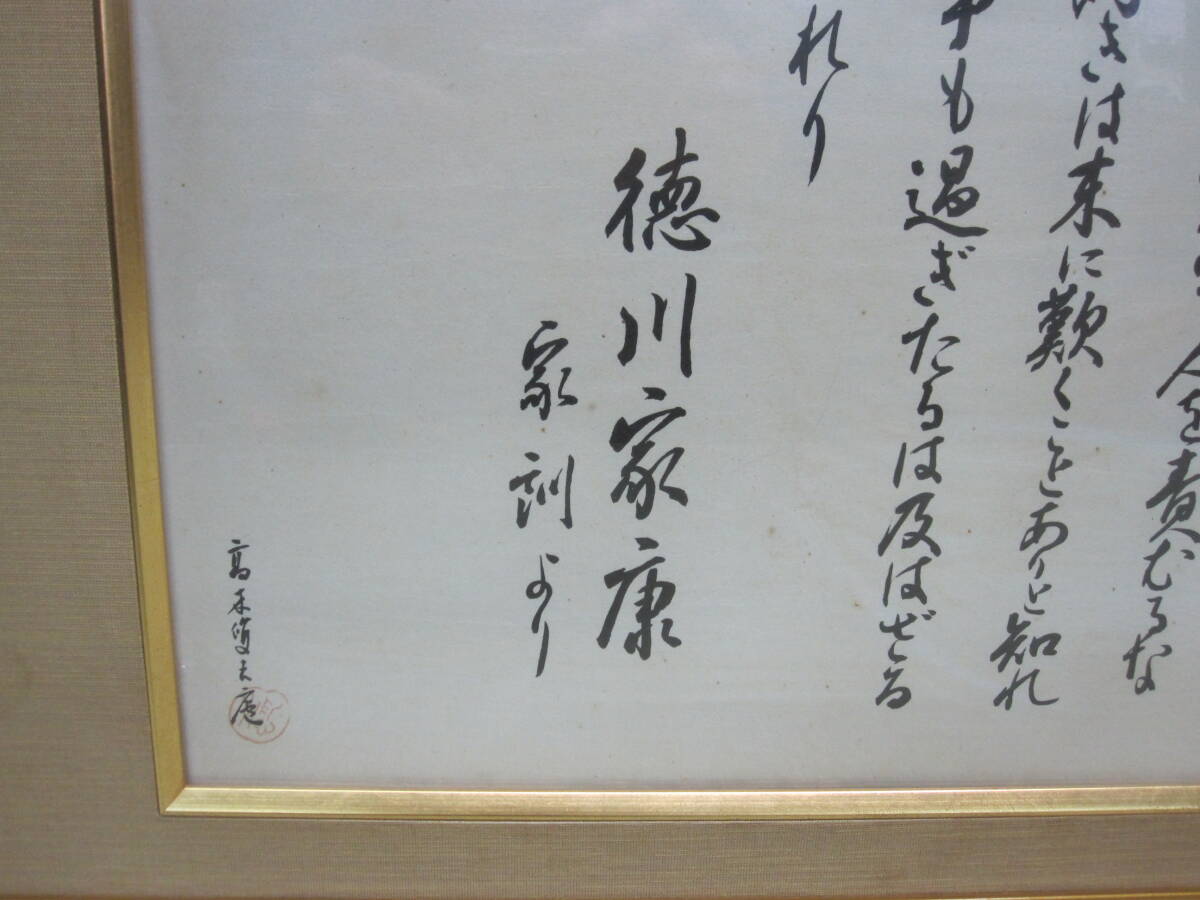 人を責むるな
きは末に歎くことありと知れ
も過ぎたるは及はざる
れり
徳川家康
家訓より
高木